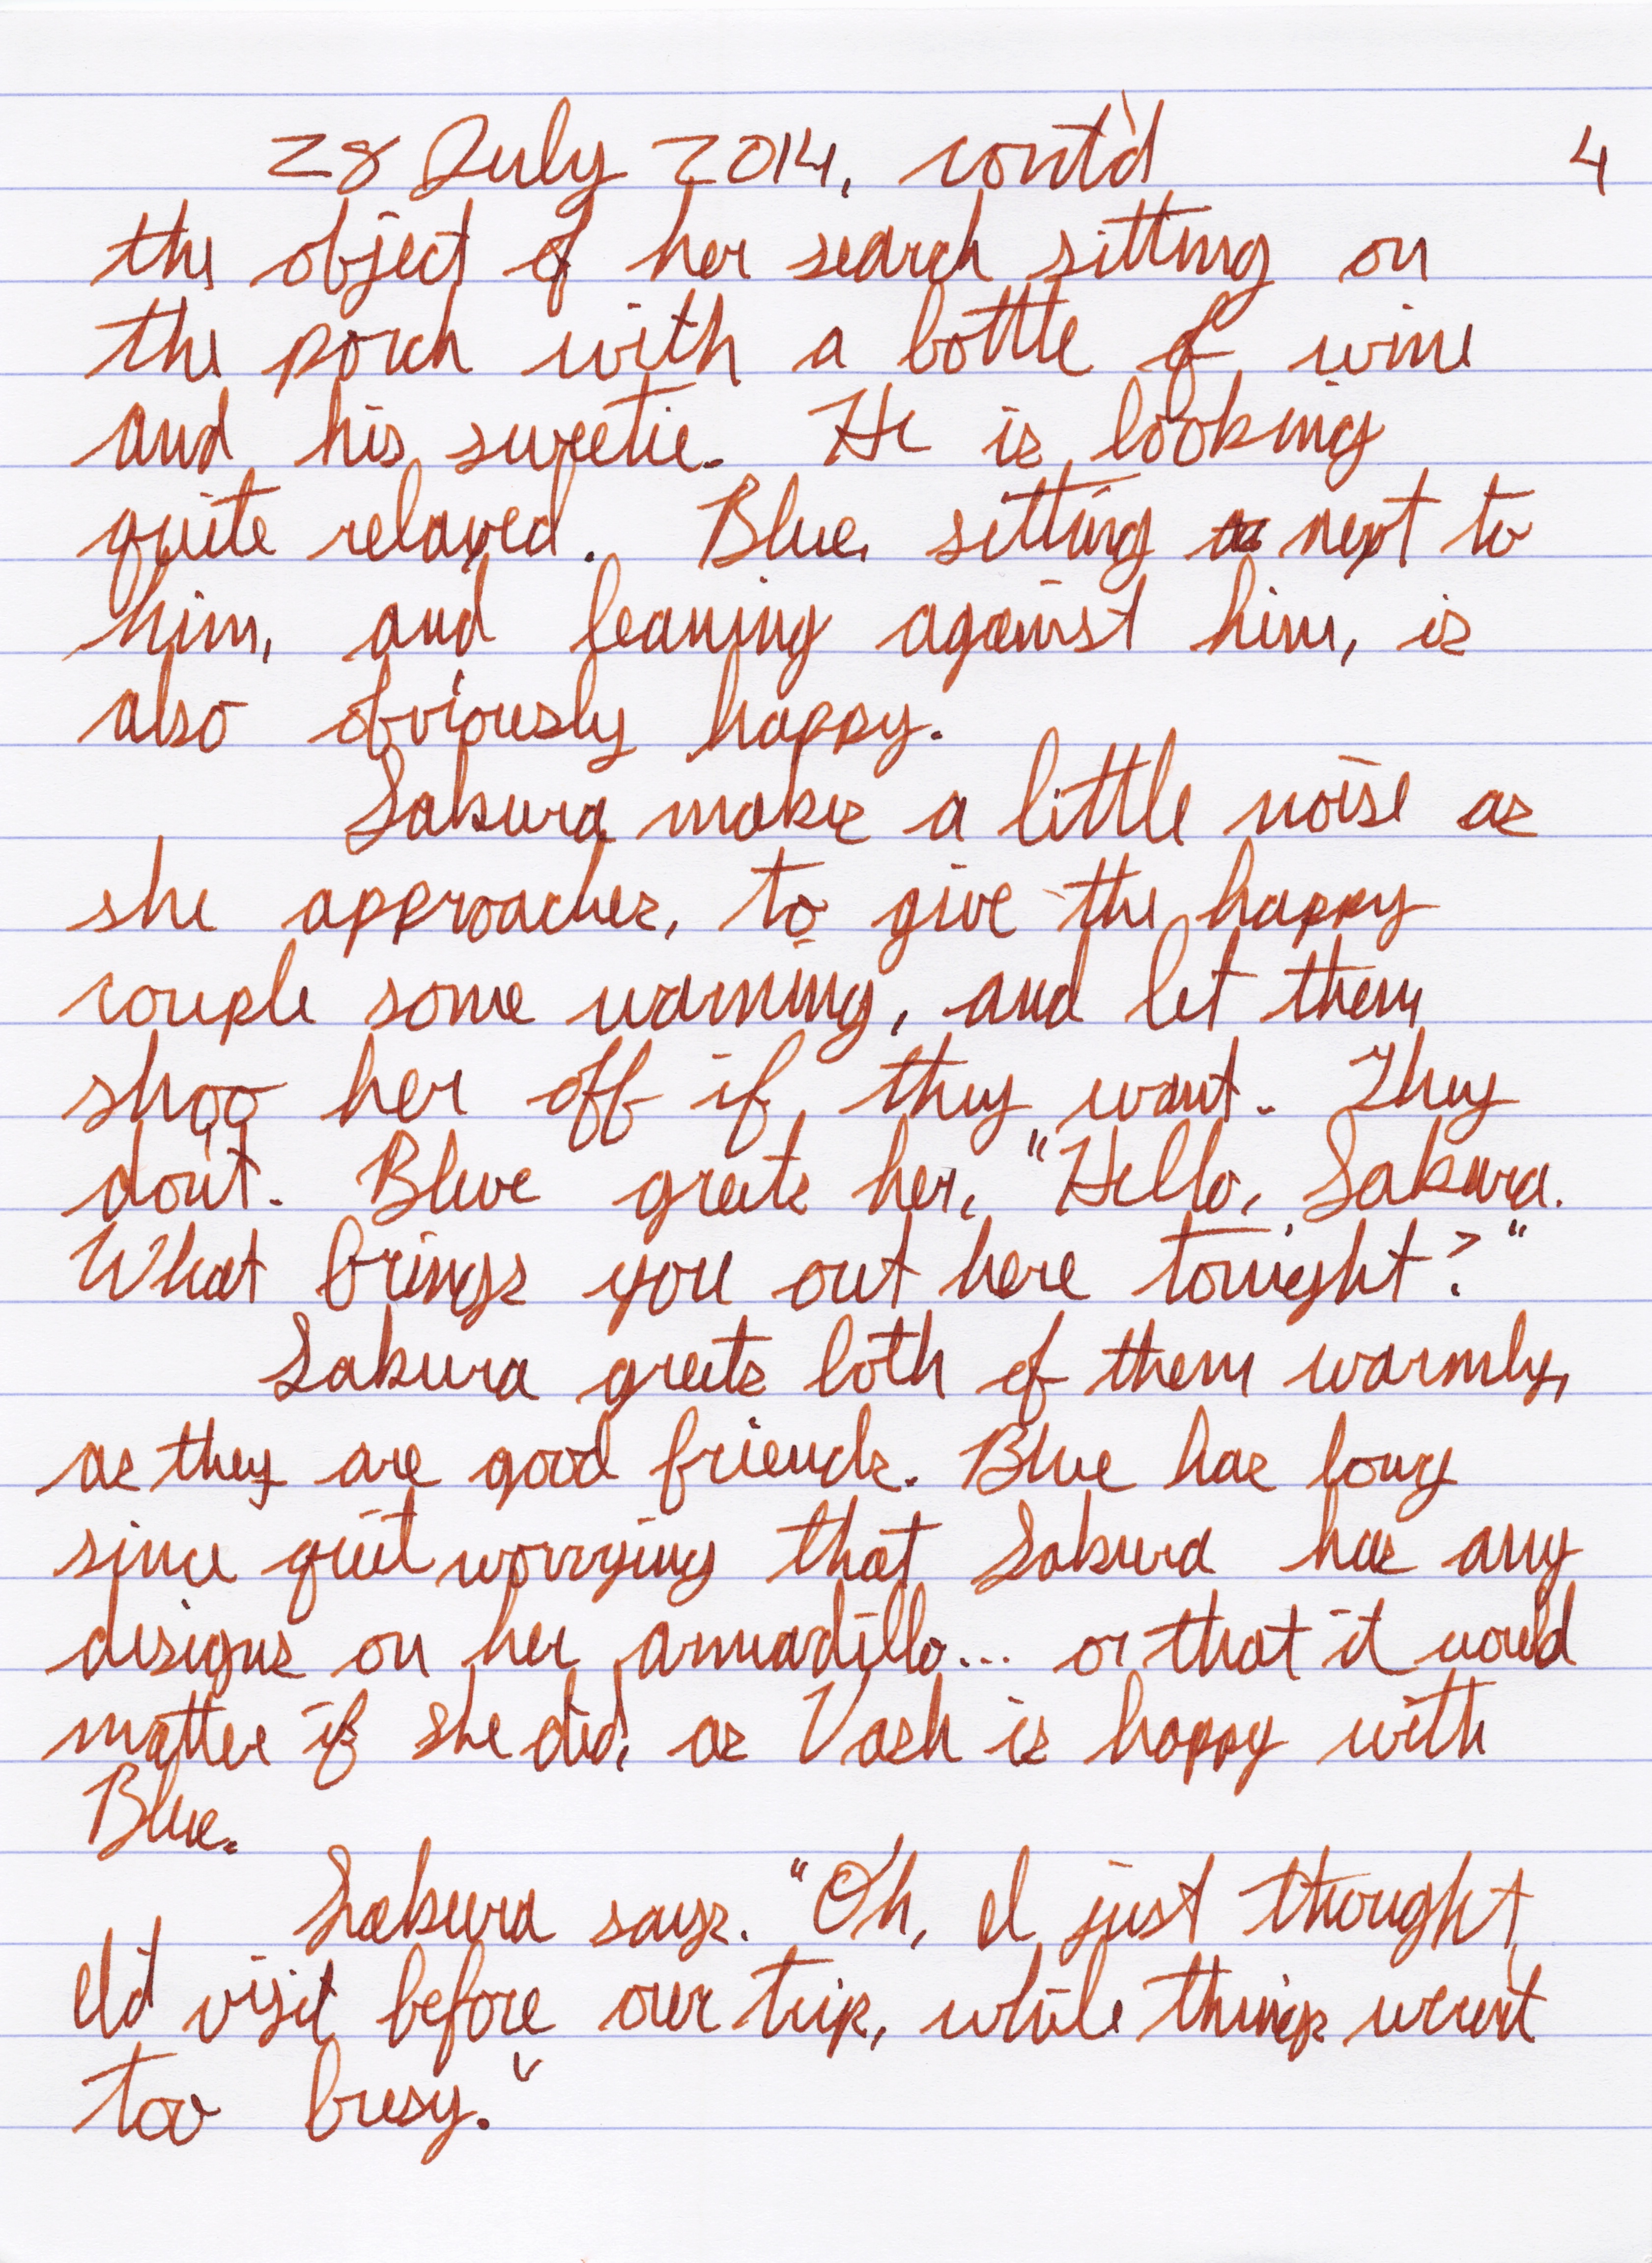 28 July 2014, cont'd 4
the object of her search sitting on
the porch with a bottle of wine
and his sweetie. He is looking
quite relaxed. Blue, sitting next to
him, and leaning against him, is
also obviously happy.
Sakura makes a little noise as
she approaches, to give the happy
couple some warning, and let them
shoo her off if they want. They
don't. Blue greets her, "Hello, Sakura.
What brings you out here tonight?"
Sakura greets both of them warmly,
as they are good friends. Blue has long
since quit worrying that Sakura has any
designs on her armadillo... or that it would
matter if she did, as Vash is happy with
Blue.
Sakura says. "Oh, I just thought
I'd visit before our trip, while things weren't
too busy."